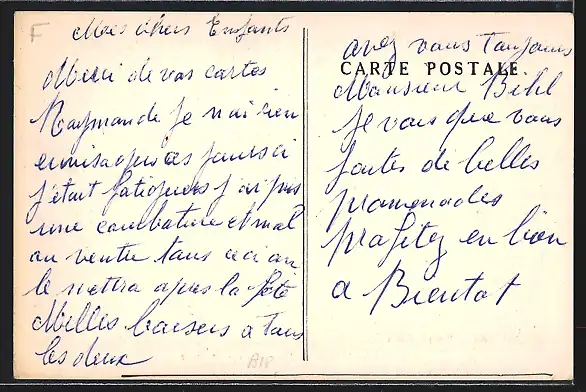 F
Mes chers Enfants
Merci de vos cartes
Raymonde je n'ai rien
ces jours ci
j'etait fatiguers j'ai pris
une courbature et mal
au ventre tous ceci on
le mettra apres la fête
Milles baisers a tous
les deux
avez vous Toujours
CARTE POSTALE
Monsieur Bihl
je vois que vous
faites de belles
promenades
profitez en bien
a Bientot